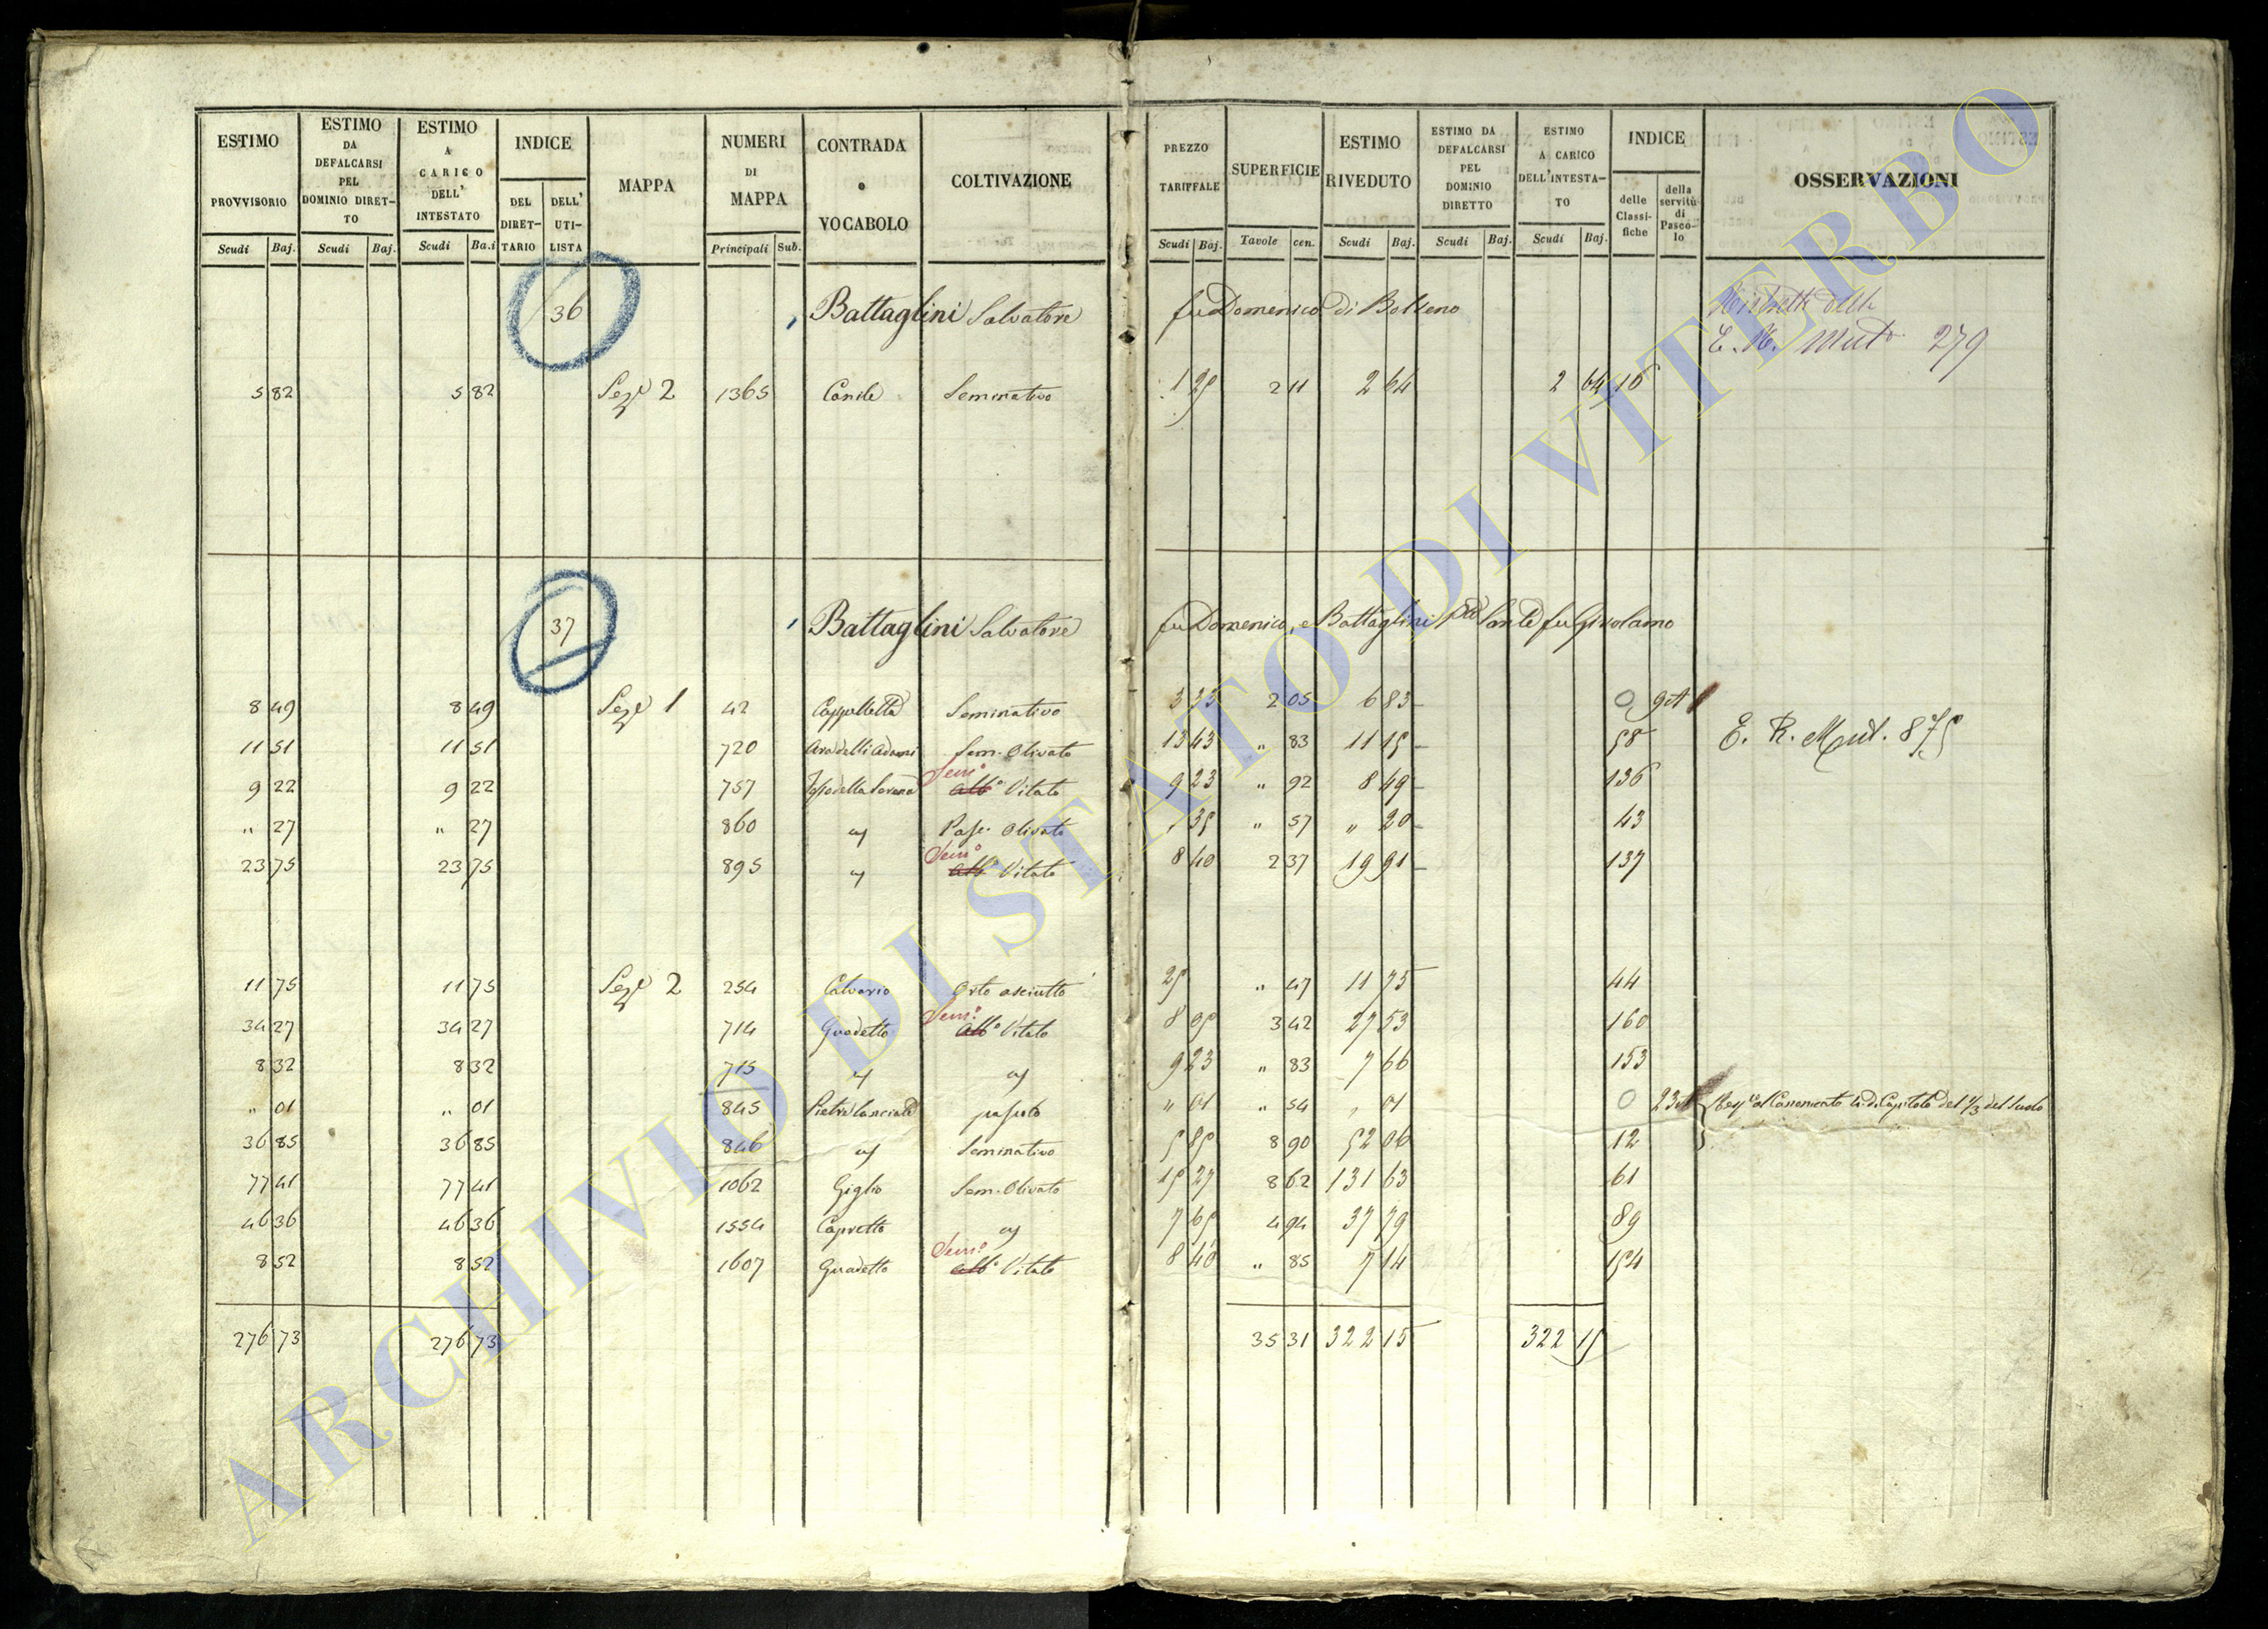 ESTIMO PROVVISORIO Scudi Baj.
ESTIMO DA DEFALCARSI PEL DOMINIO DIRET-TO Scudi Baj.
ESTIMO A CARICO DELL' INTESTATO Scudi Ba.i
INDICE DEL DIRET-TARIO DELL' UTI-LISTA
MAPPA
NUMERI DI MAPPA Principali Sub.
CONTRADA o VOCABOLO
COLTIVAZIONE
PREZZO TARIFFALE Scudi Baj.
SUPERFICIE Tavole cen.
ESTIMO RIVEDUTO Scudi Baj.
ESTIMO DA DEFALCARSI PEL DOMINIO DIRETTO Scudi Baj.
ESTIMO A CARICO DELL'INTESTA-TO Scudi Baj.
INDICE delle Classi-fiche della servitù di Pasco-lo
OSSERVAZIONI
36 Battaglini Salvatore fu Domenico di Bolseno
E. R. Mut. 279
5 82 5 82 Sez.e 2 1365 Canile Seminativo 1 25 2 11 2 64 2 64 16
37 Battaglini Salvatore fu Domenico, e Battaglini Sante fu Girolamo
8 49 8 49 Sez.e 1 42 Cappelletta Seminativo 3 33 2 05 6 83 0
E. R. Mut. 875
11 51 11 51 720 Sem. Olivato 13 43 " 83 11 15 58
9 22 9 22 757 Fosso della Sem.o Alb.o Vitato 9 23 " 92 8 49 136
" 27 " 27 860 " Pasc. Olivato " 35 " 57 " 20 43
23 75 23 75 895 " Sem.o Alb.o Vitato 8 40 2 37 19 91 137
11 75 11 75 Sez.e 2 254 Calvario Orto asciutto 25 " 47 11 75 44
34 27 34 27 714 Guadetto Sem.o Alb.o Vitato 8 05 3 42 27 53 160
8 32 8 32 715 " " 9 23 " 83 7 66 153
" 01 " 01 845 Pietre lanciate pascolo " 01 " 54 " 01 0 al Canonicato di Capitolo del 1/3 del Suolo
36 85 36 85 846 " Seminativo 5 85 8 90 52 06 12
77 41 77 41 1062 Giglio Sem. Olivato 15 27 8 62 131 63 61
46 36 46 36 1554 Capretto " 7 65 4 94 37 79 89
8 52 8 52 1607 Guadetto Sem.o Alb.o Vitato 8 40 " 85 7 14 154
276 73 276 73 35 31 322 15 322 15
ARCHIVIO DI STATO DI VITERBO